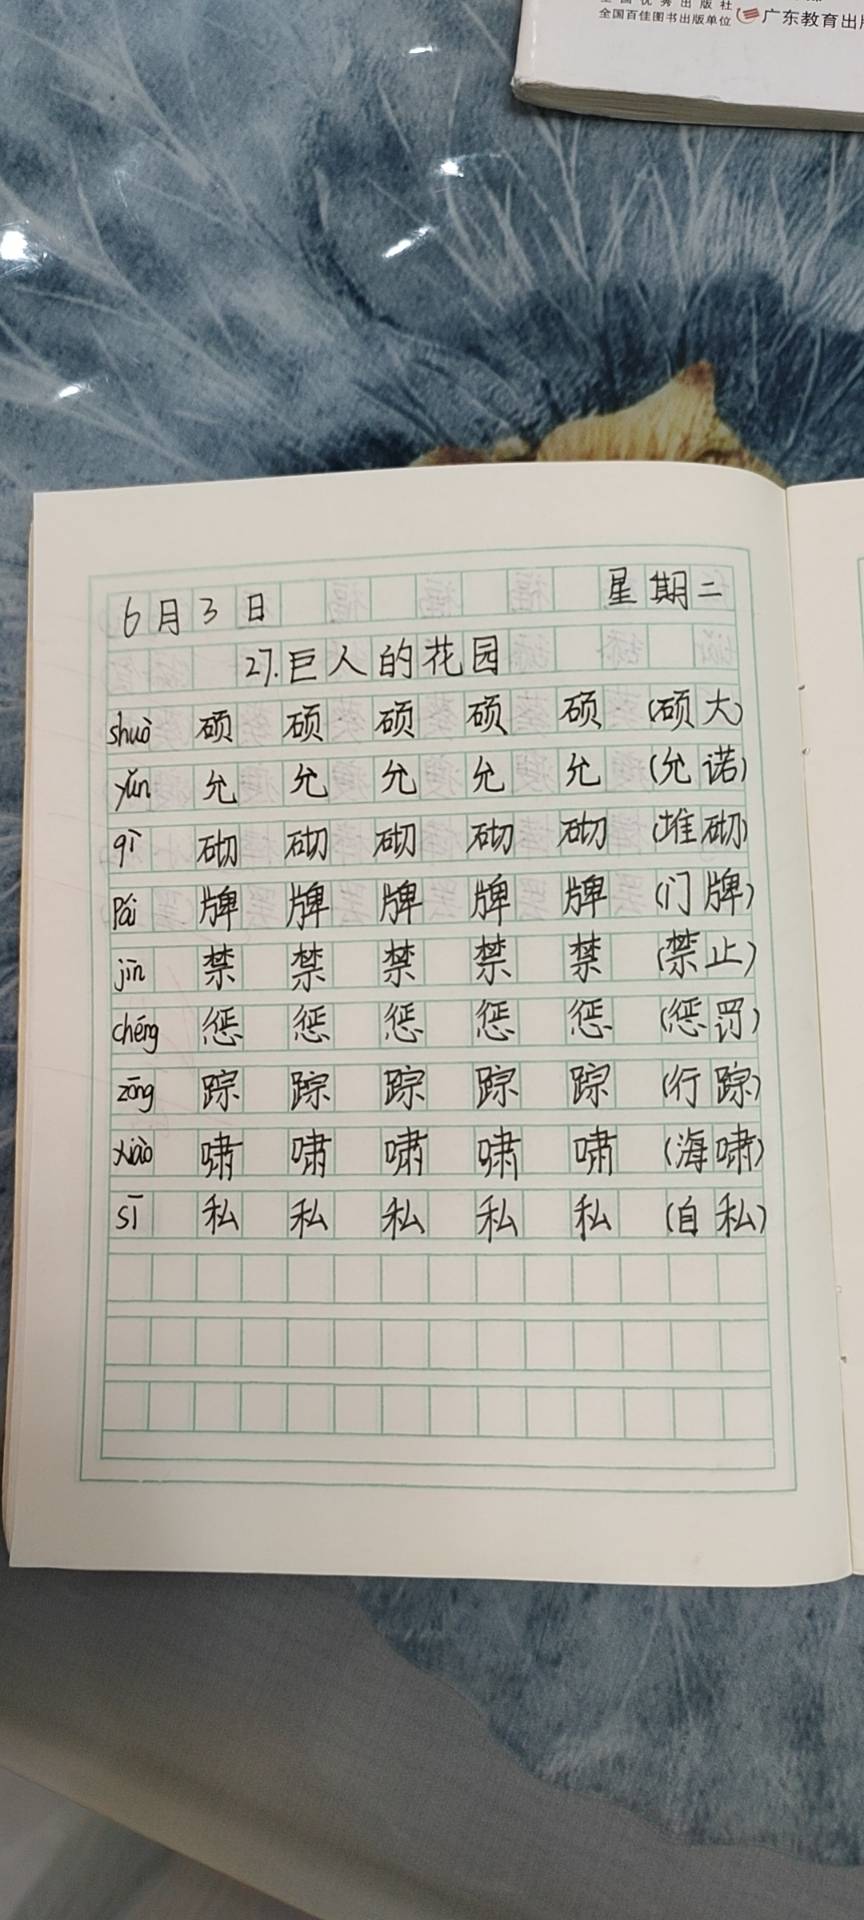 全国优秀出版社
全国百佳图书出版单位 广东教育出版
6月3日 星期二
27.巨人的花园
shuò 硕 硕 硕 硕 硕 (硕大)
yǔn 允 允 允 允 允 (允诺)
qì 砌 砌 砌 砌 砌 (堆砌)
pái 牌 牌 牌 牌 牌 (门牌)
jìn 禁 禁 禁 禁 禁 (禁止)
chéng 惩 惩 惩 惩 惩 (惩罚)
zōng 踪 踪 踪 踪 踪 (行踪)
xiào 啸 啸 啸 啸 啸 (海啸)
sī 私 私 私 私 私 (自私)